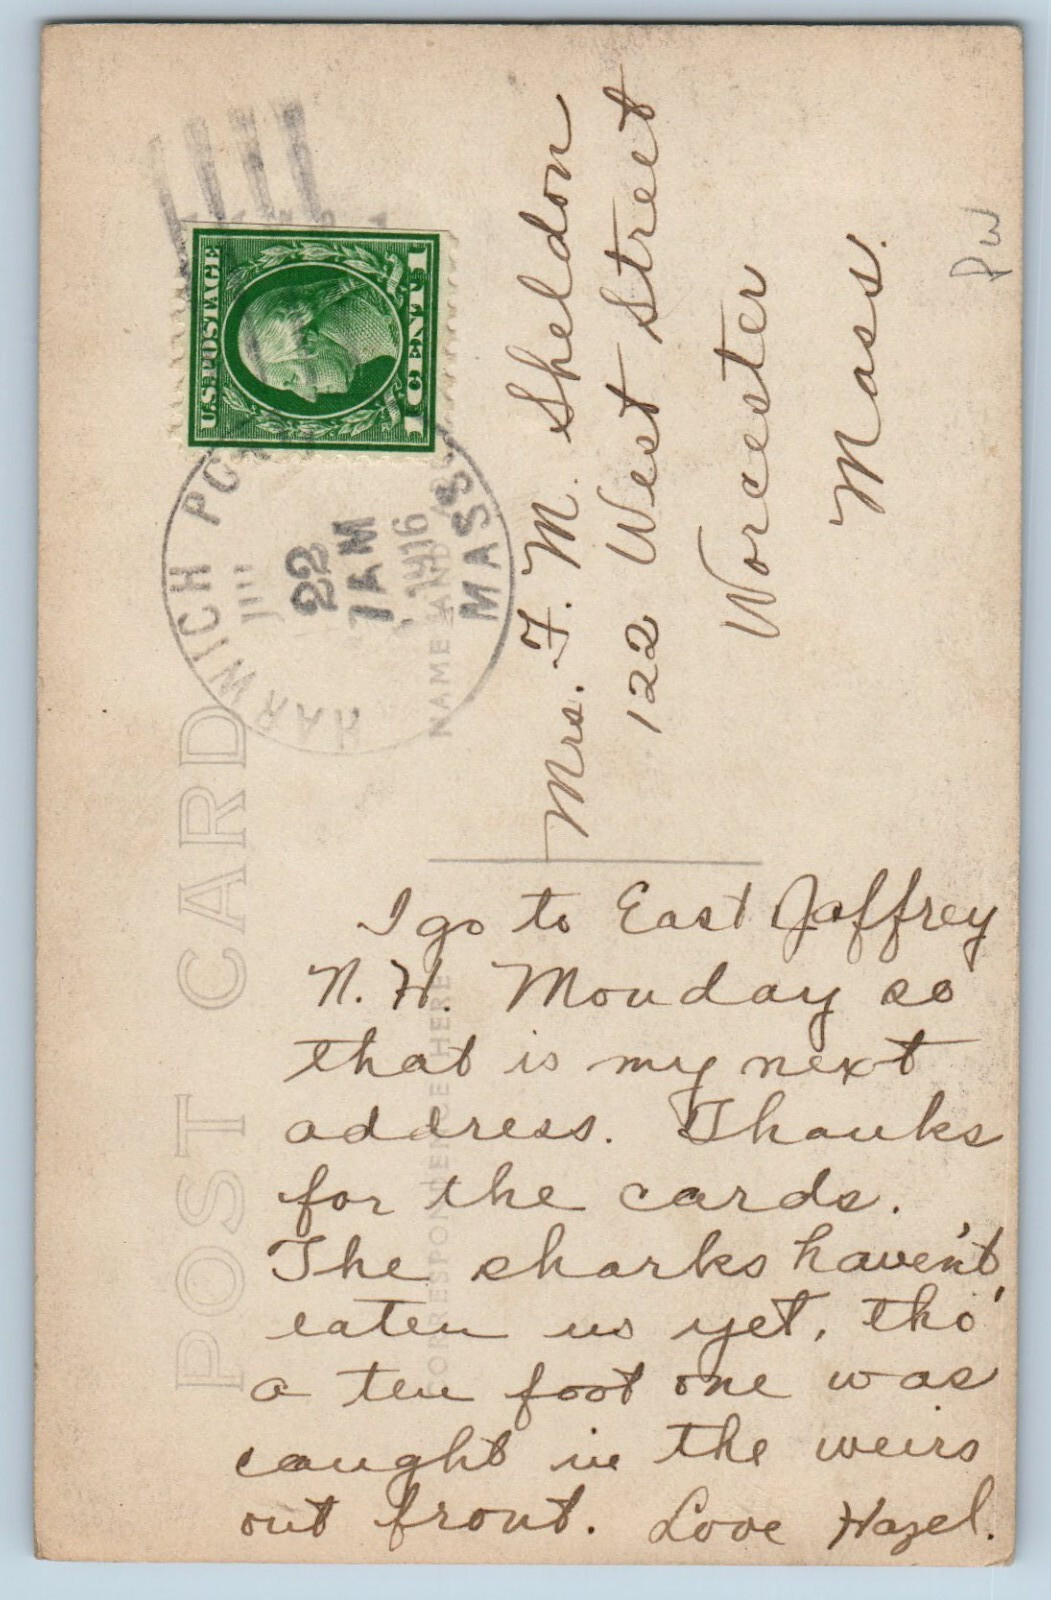 POST CARD
CORRESPONDENCE HERE
NAME AND
HARWICH PORT
MASS
JUL
22
7 AM
1916
U.S. POSTAGE
1 CENT 1
Mrs. F. M. Sheldon
122 West Street
Worcester
Mass.
PW
I go to East Jaffrey
N. H. Monday so
that is my next
address. Thanks
for the cards.
The sharks haven't
eaten us yet, tho'
a ten foot one was
caught in the weirs
out front. Love Hazel.